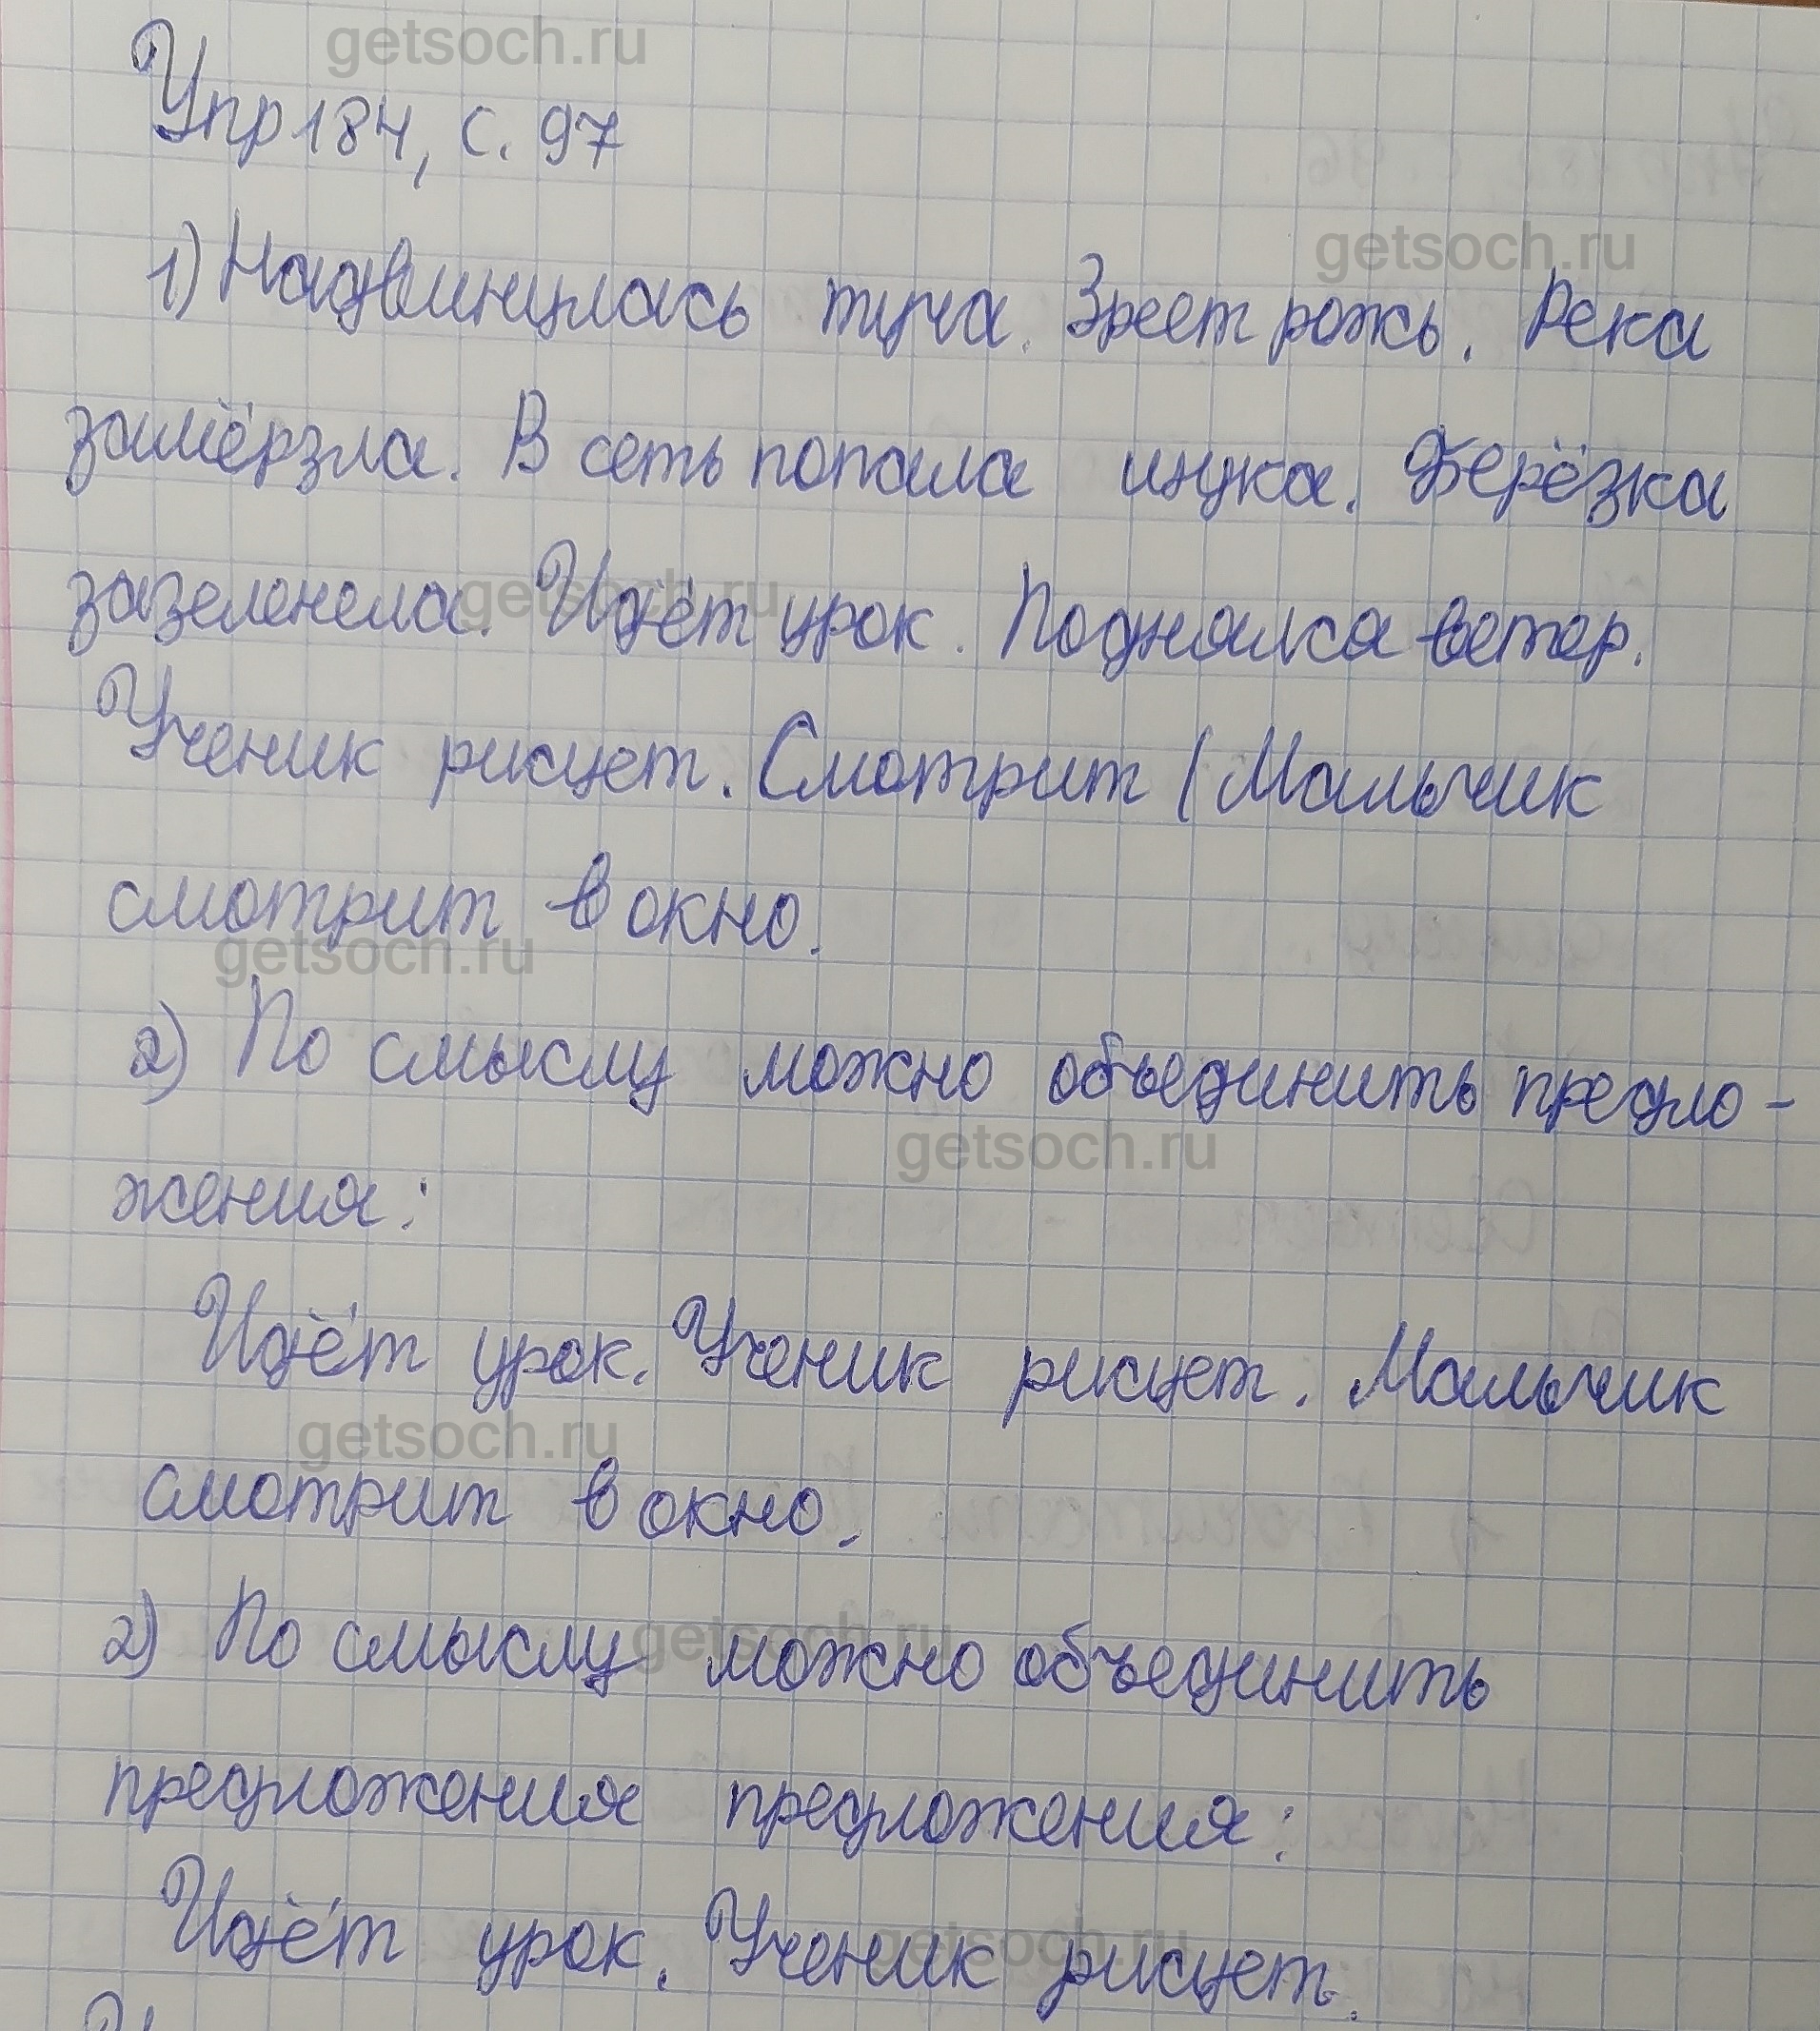 getsoch.ru
Упр 184, с. 97
getsoch.ru
1) Надвинулась туча. Зреет рожь. Река
замёрзла. В сеть попала щука. Берёзка
getsoch.ru
зазеленела. Идёт урок. Поднялся ветер.
Ученик рисует. Смотрит (Мальчик
смотрит в окно.
getsoch.ru
2) По смыслу можно объединить предло-
getsoch.ru
жения:
Идёт урок. Ученик рисует. Мальчик
getsoch.ru
смотрит в окно.
getsoch.ru
2) По смыслу можно объединить
предложения предложения:
getsoch.ru
Идёт урок. Ученик рисует.